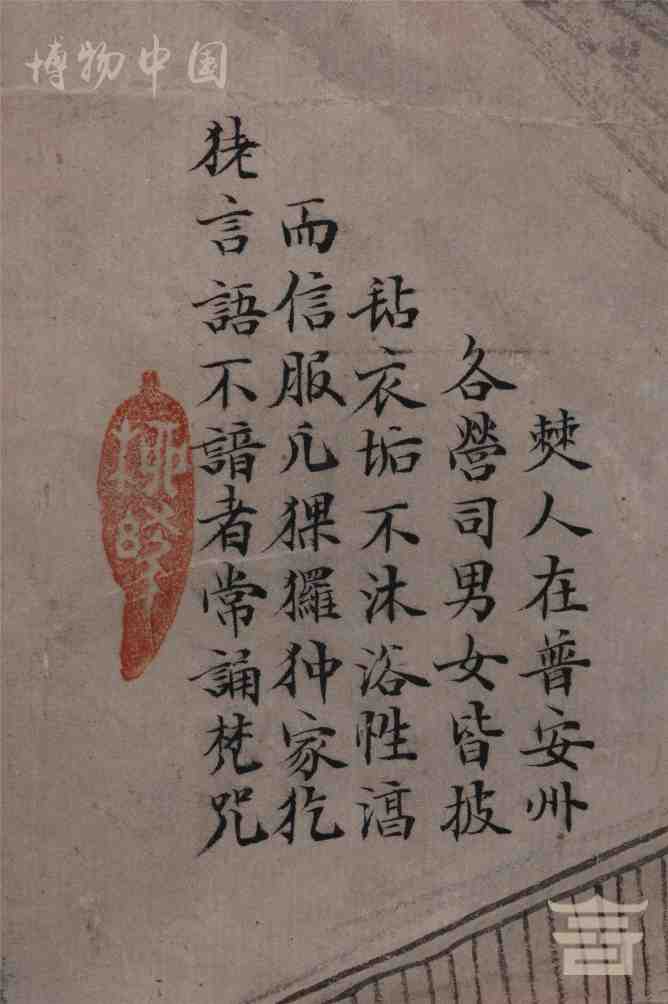 博物中国
僰人在普安州
各營司男女皆披
毡衣垢不沐浴性湻
而信服凢猓玀狆家犵
狫言語不諳者常誦梵咒